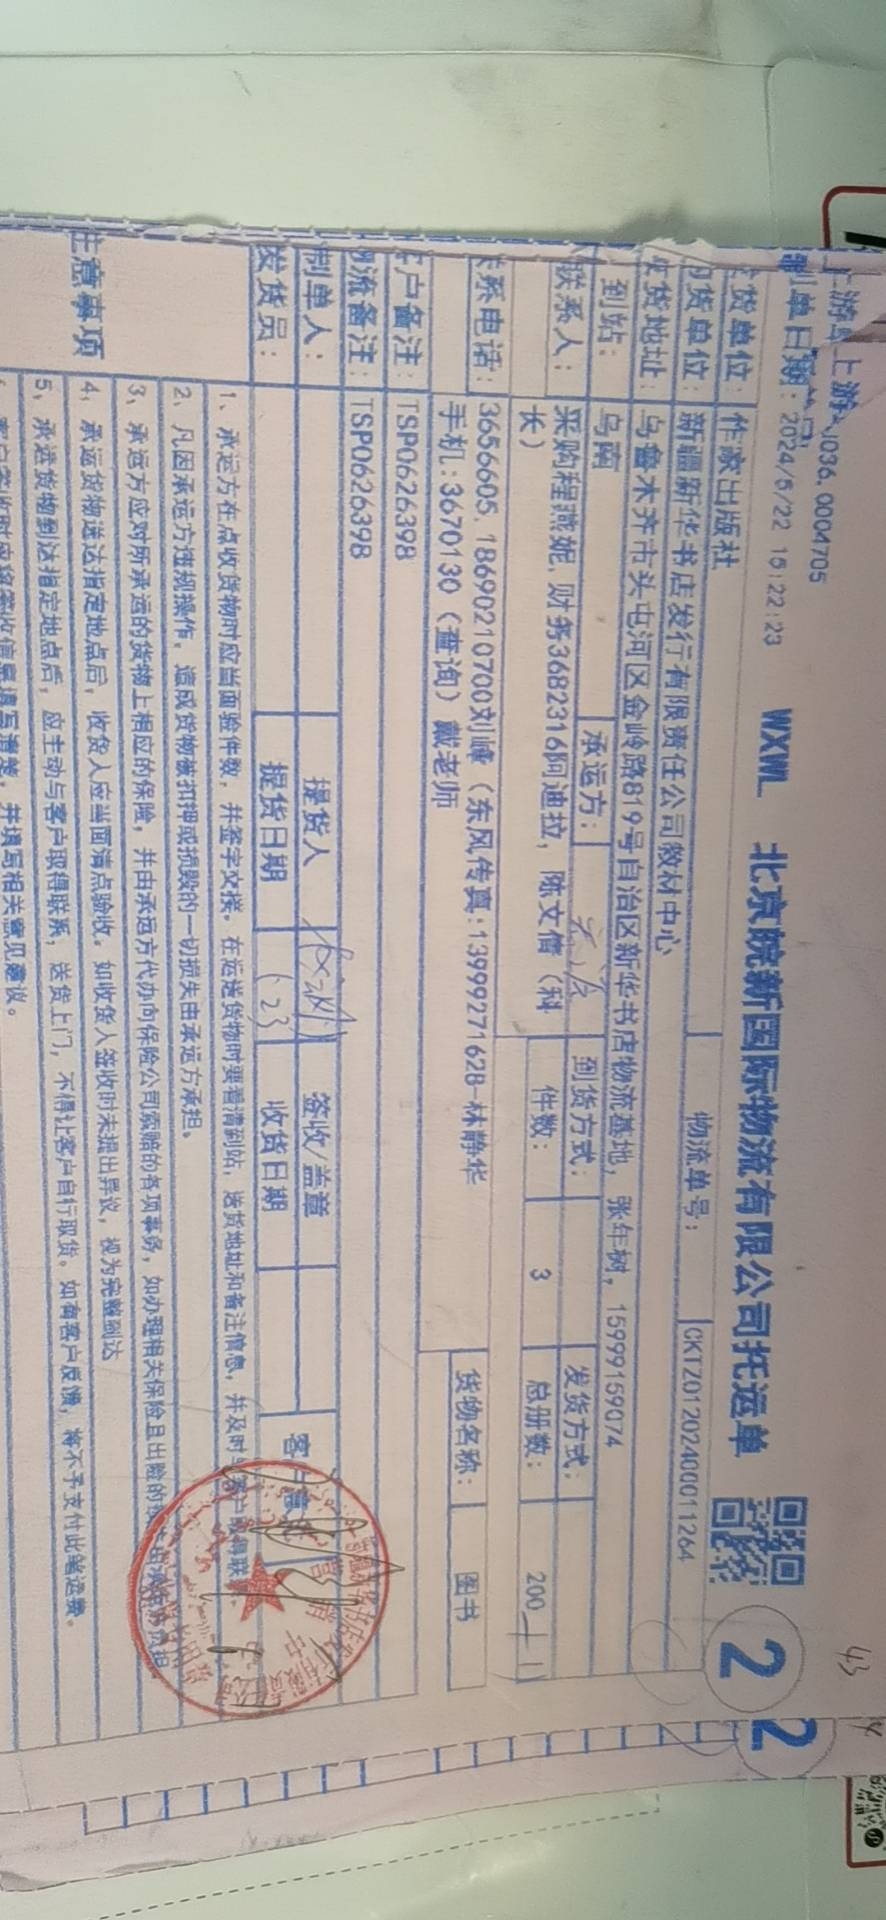 上游 上游 J036, 0004705
制单日期：2024/5/22 15:22:23 WXWL 北京皖新国际物流有限公司托运单 2 2
43
发货单位：作家出版社 物流单号：CKTZ01202400011264
收货单位：新疆新华书店发行有限责任公司教材中心
收货地址：乌鲁木齐市头屯河区金岭路819号自治区新华书店物流基地，张年树，15999159074
到站：乌南 承运方： 到货方式： 发货方式：
联系人：采购程燕妮，财务3682316阿迪拉，陈文倩（科长） 件数：3 总册数：200
联系电话：3656605, 18690210700刘峰（东风传真：13999271628-林静华
手机：3670130（查询）戴老师 货物名称：图书
客户备注：TSP062639B
物流备注：TSP062639B
制单人： 提货人 签收/盖章
发货员： 提货日期 (23 收货日期
主意事项
1、承运方在点收货物时应当面验件数，并签字交接。在运送货物时要看清到站，送货地址和备注信息，并及时
2、凡因承运方违规操作，造成货物被扣押或损毁的一切损失由承运方承担。
3、承运方应对所承运的货物上相应的保险，并由承运方代办向保险公司索赔的各项事务，如办理相关保险且出险的
4、承运货物送达指定地点后，收货人应当面清点验收。如收货人签收时未提出异议，视为完整到达
5、承运货物到达指定地点后，应主动与客户取得联系，送货上门，不得让客户自行取货。如有客户反馈，将不予支付此笔运费。
并填写相关意见建议。